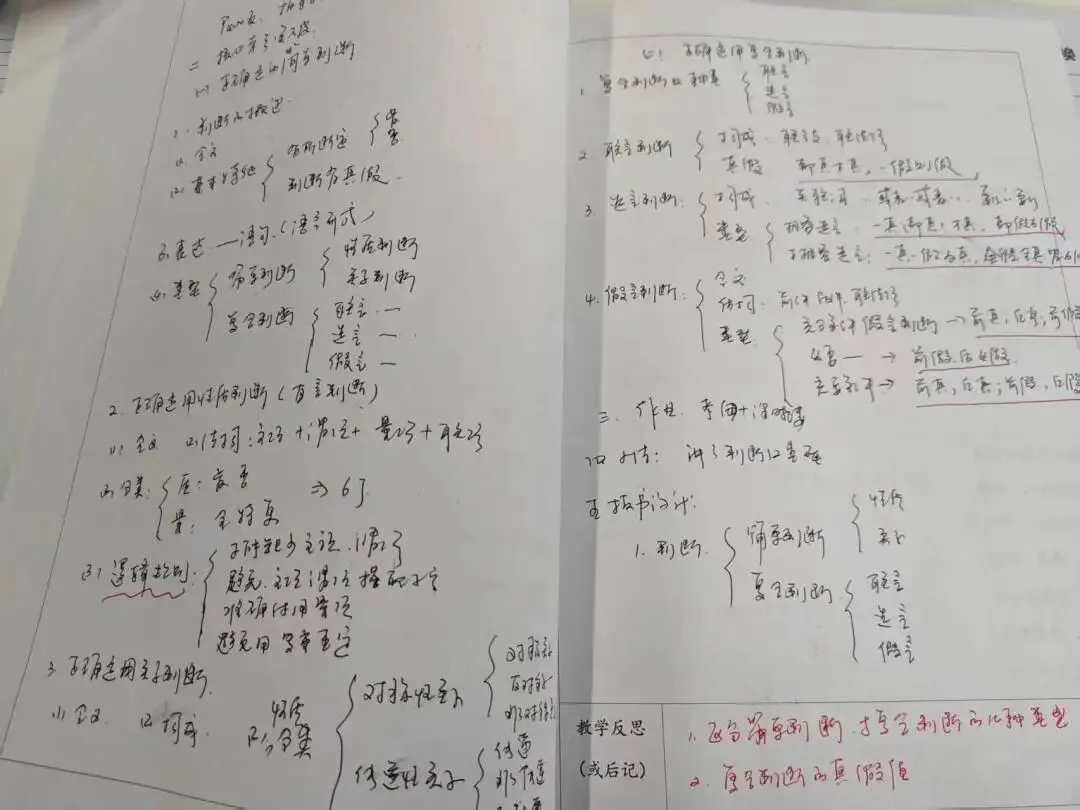 二
(一) 正确运用简单判断
1. 判断的概述
(1) 含义
(2) 基本特征 { 有所断定 { 肯 否
判断有真假
(3) 表达 — 语句 (语言形式)
(4) 类型 { 简单判断 { 性质判断 关系判断
复合判断 { 联言 — 选言 — 假言 —
2. 正确运用性质判断 (直言判断)
(1) 含义 (2) 结构: 主项 + 谓项 + 量项 + 联项
(3) 分类: { 质: 肯否 量: 全特单 ⇒ 6了
(4) 逻辑规则: { 不能缺少主项、谓项
避免主项谓项搭配不当
准确使用量项
避免用多重否定
3. 正确运用关系判断
(1) 含义 (2) 构成 性质 (3) 分类 { 对称性关系 { 对称 反对称 非对称
传递性关系 { 传递 非传递
(二) 正确运用复合判断
1. 复合判断的种类 { 联言 选言 假言
2. 联言判断 { 构成: 联言支、联结项
真假: 都真才真,一假则假
3. 选言判断: { 构成: 选言支 或者…或者… 要么…要么
类型 { 相容选言: 一真即真,都假则假
不相容选言: 一真一假为真,
4. 假言判断: { 含义
结构: 前件 后件、联结项
类型 { 充分条件假言判断 → 前真,后真;前假
必要 — → 前假后必假
充要条件 → 前真,后真;前假,后假
三. 作业
四 小结:
五 板书设计:
1. 判断 { 简单判断 { 性质 关系
复合判断 { 联言 选言 假言
教学反思
(或后记)
1. 区分简单判断与复合判断的几种类型
2. 复合判断的真假值